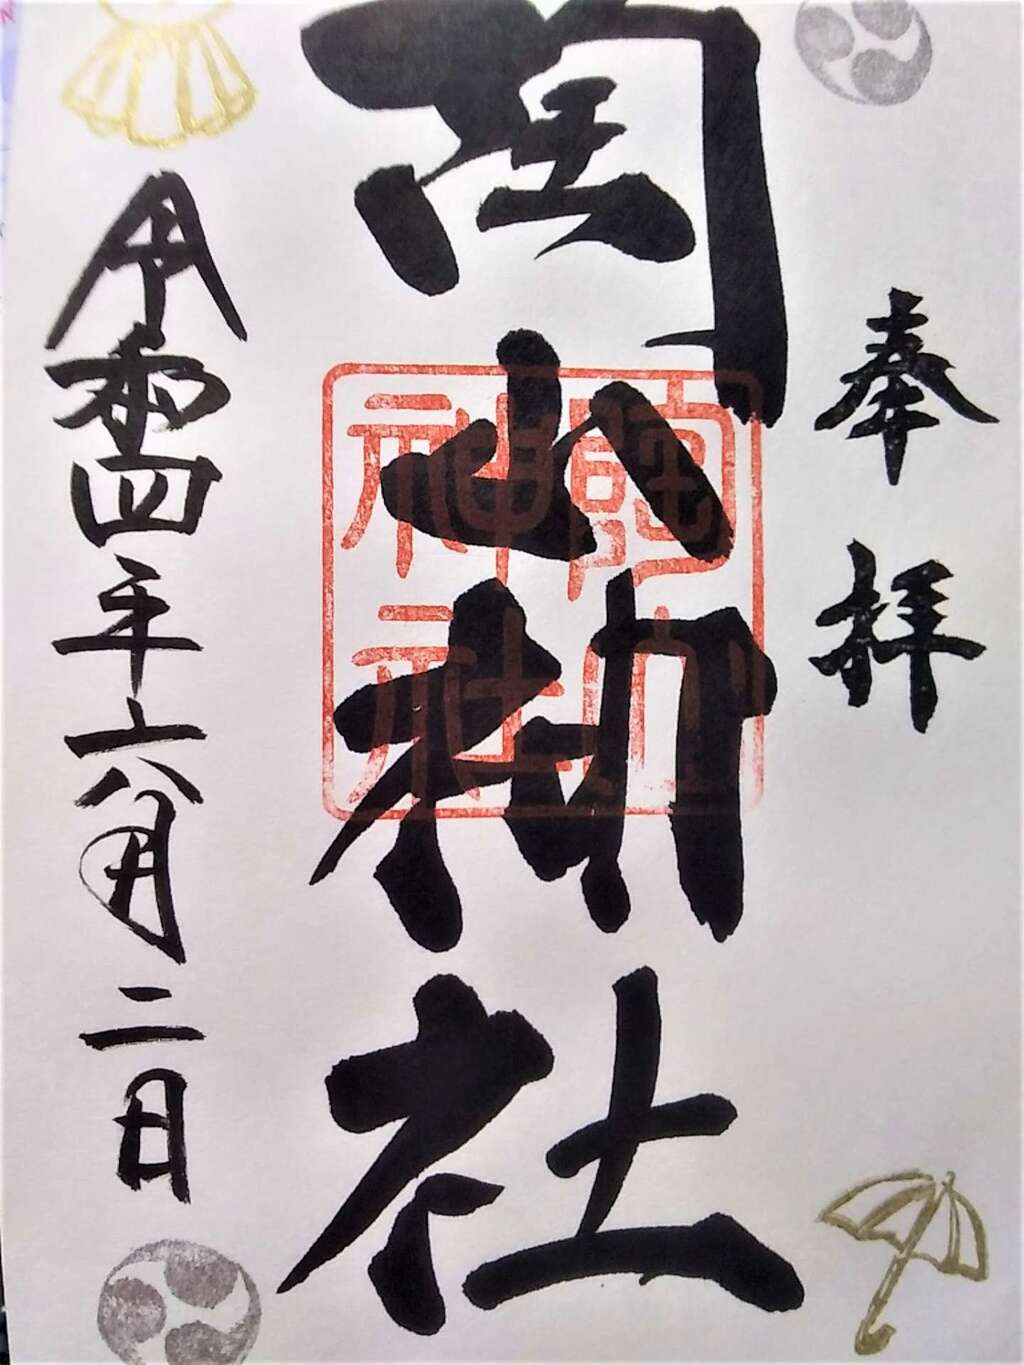 奉拝
岡山神社
令和四年六月二日